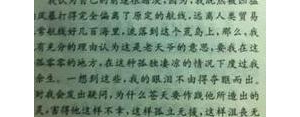 我认为自己的前途很暗淡,因为,我既然被凶猛
风暴打得完全偏离了原定的航线,远离人类贸易
常航线好几百海里,流落到这个荒岛上,那么,我
有充分的理由认为这是老天爷的意思,要我在这
孤零零的地方,在这种孤独凄凉的情况下度过我
余生。一想到这些,我的眼泪不由得夺眶而出。
对我会发出疑问,为什么苍天要作践他所造出的
灵,害得他这样不幸,这样孤立无援,这样沮丧无